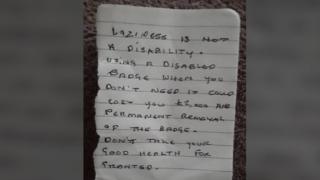 LAZINESS IS NOT
A DISABILITY.
USING A DISABLED
BADGE WHEN YOU
DON'T NEED IT COULD
COST YOU £1,000 AND
PERMANENT REMOVAL
OF THE BADGE.
DON'T TAKE YOUR
GOOD HEALTH FOR
GRANTED.